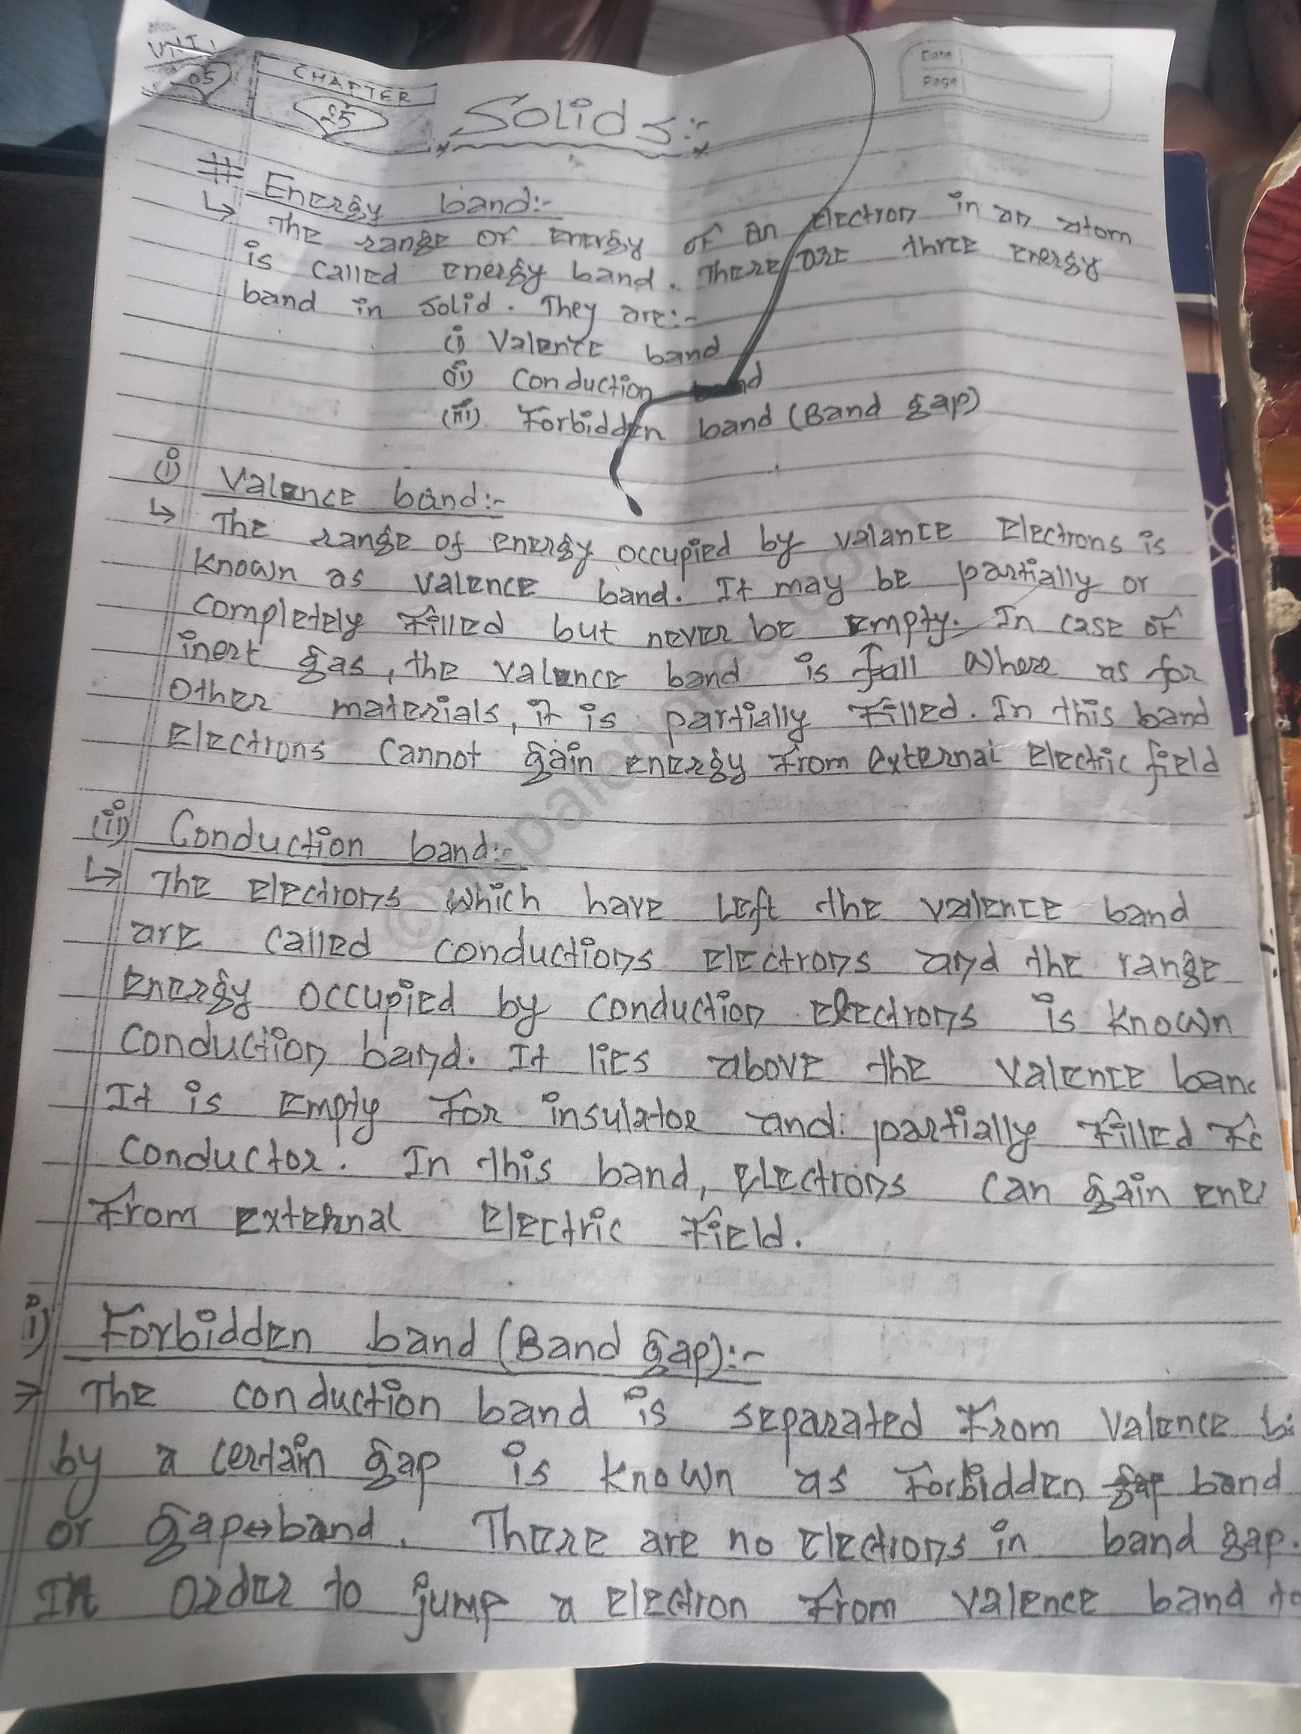 UNIT
05
CHAPTER
25
Solids:-
Date
Page
# Energy band:-
↳ The range of energy of an electron in an atom
is called energy band. There are three energy
band in solid. They are:-
(i) Valence band
(ii) Conduction band
(iii) Forbidden band (Band gap)
(i) Valence band:-
↳ The range of energy occupied by valance electrons is
known as valence band. It may be partially or
completely filled but never be empty. In case of
inert gas, the valence band is full where as for
other materials, it is partially filled. In this band
electrons cannot gain energy from external electric field
(ii) Conduction band:-
↳ The electrons which have left the valence band
are called conductions electrons and the range
energy occupied by conduction electrons is known
conduction band. It lies above the valence ban
It is empty for insulator and partially filled fo
conductor. In this band, electrons can gain ene
from external electric field.
i) Forbidden band (Band gap):-
→ The conduction band is separated from valence b
by a certain gap is known as forbidden gap band
or gap↔band. There are no electrons in band gap.
In order to jump a electron from valence band to